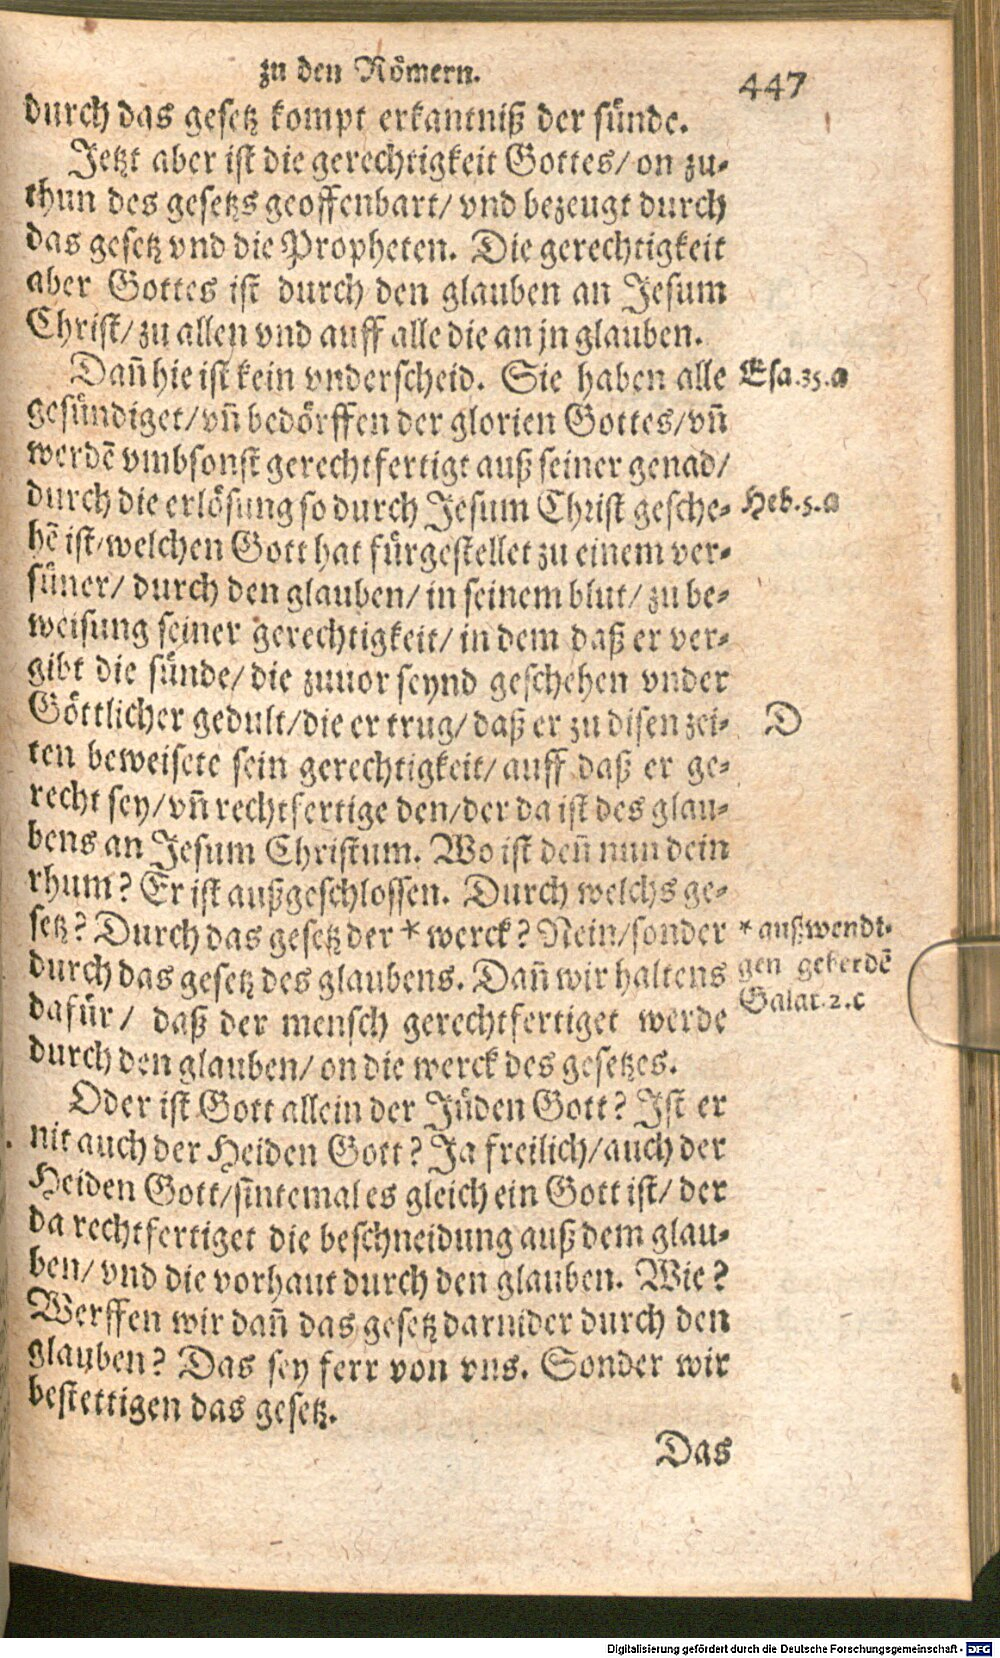 zu den Römern.
447
durch das gesetz kompt erkantniß der sünde.
Jetzt aber ist die gerechtigkeit Gottes/ on zu-
thun des gesetzs geoffenbart/ vnd bezeugt durch
das gesetz vnd die Propheten. Die gerechtigkeit
aber Gottes ist durch den glauben an Jesum
Christ/ zu allen vnd auff alle die an jn glauben.
Dañ hie ist kein vnderscheid. Sie haben alle
Esa.35.a
gesündiget/ vñ bedörffen der glorien Gottes/ vñ
werdē vmbsonst gerechtfertigt auß seiner genad/
durch die erlösung so durch Jesum Christ gesche-
Heb.5.a
hē ist/ welchen Gott hat fürgestellet zu einem ver-
süner/ durch den glauben/ in seinem blut/ zu be-
weisung seiner gerechtigkeit/ in dem daß er ver-
gibt die sünde/ die zuuor seynd geschehen vnder
Göttlicher gedult/ die er trug/ daß er zu disen zei-
D
ten beweisete sein gerechtigkeit/ auff daß er ge-
recht sey/ vñ rechtfertige den/ der da ist des glau-
bens an Jesum Christum. Wo ist deñ nun dein
rhum? Er ist außgeschlossen. Durch welchs ge-
setz? Durch das gesetz der * werck? Nein/ sonder
* außwendi-
durch das gesetz des glaubens. Dañ wir haltens
gen geberdē
dafür/ daß der mensch gerechtfertiget werde
Galat.2.c
durch den glauben/ on die werck des gesetzes.
Oder ist Gott allein der Jüden Gott? Ist er
nit auch der Heiden Gott? Ja freilich/ auch der
Heiden Gott/ sintemal es gleich ein Gott ist/ der
da rechtfertiget die beschneidung auß dem glau-
ben/ vnd die vorhaut durch den glauben. Wie?
Werffen wir dañ das gesetz darnider durch den
glauben? Das sey ferr von vns. Sonder wir
bestettigen das gesetz.
Das
Digitalisierung gefördert durch die Deutsche Forschungsgemeinschaft - DFG